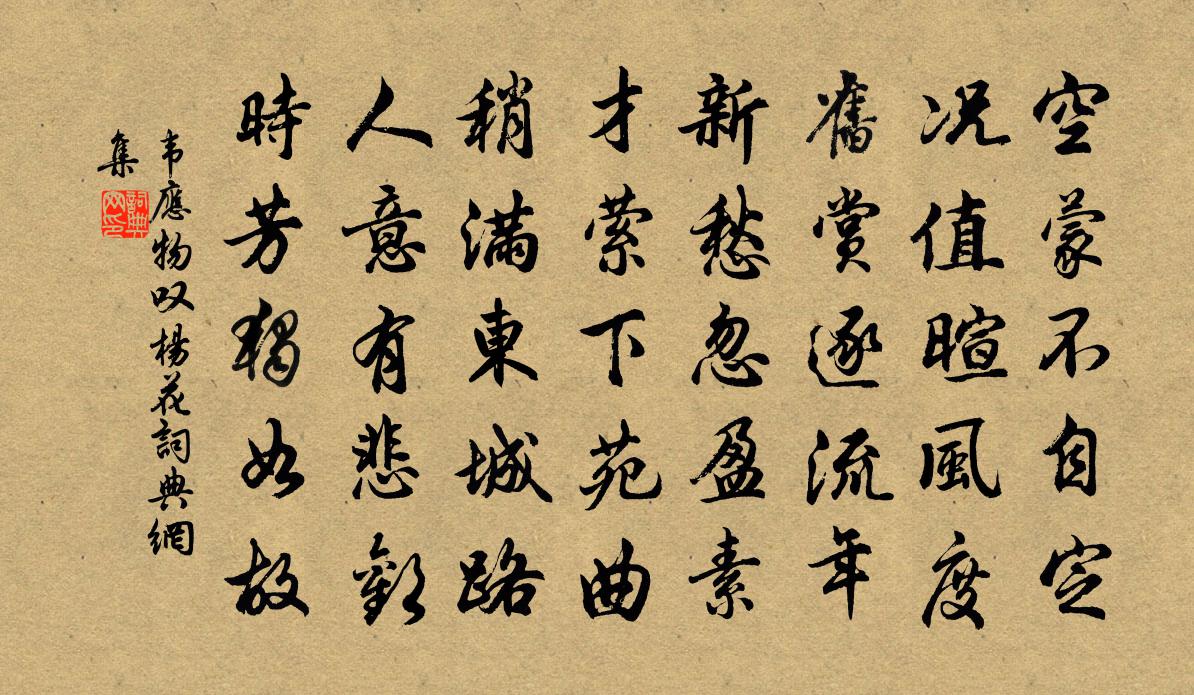 空蒙不自定
况值暄風度
舊賞逐流年
新愁忽盈素
才萦下苑曲
稍滿東城路
人意有悲歡
時芳獨如故
韦應物叹楊花詞典網
集
詞典
网印